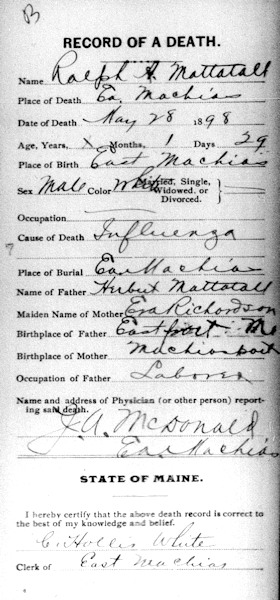 B
RECORD OF A DEATH.
Name Ralph A. Mattatall
Place of Death Ea. Machias
Date of Death May 28 1898
Age, Years, X Months, 1 Days 29
Place of Birth East Machias
Sex Male Color White Married, Single, Widowed. or Divorced.
Occupation
Cause of Death Influenza
Place of Burial Ea. Machias
Name of Father Herbert Mattatall
Maiden Name of Mother Eva Richardson
Birthplace of Father Eastport Me
Birthplace of Mother Machiasport
Occupation of Father Laborer
Name and address of Physician (or other person) report-
ing said death.
J. A. McDonald
Ea. Machias
STATE OF MAINE.
I hereby certify that the above death record is correct to
the best of my knowledge and belief.
C. Hollis White
Clerk of East Machias